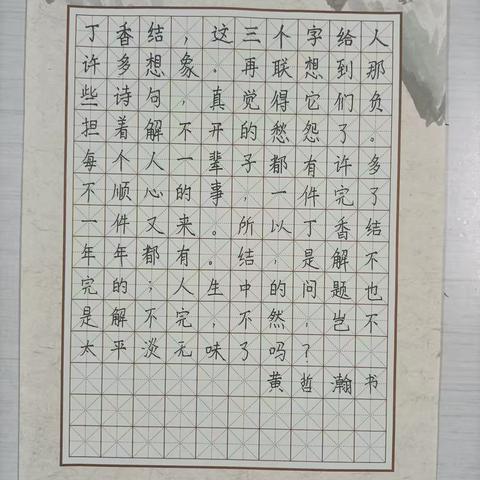 丁香结，这三个字给人
许多想象。再联想到那
些诗句，真觉得它们负
担着解不开的愁怨了。
每个人一辈子都有许多
不顺心的事，一件完了
一件又来。所以丁香结
年年都有。结，是解不
完的；人生中的问题也
是解不完，不然，岂不
太平淡无味了吗？
黄哲瀚书